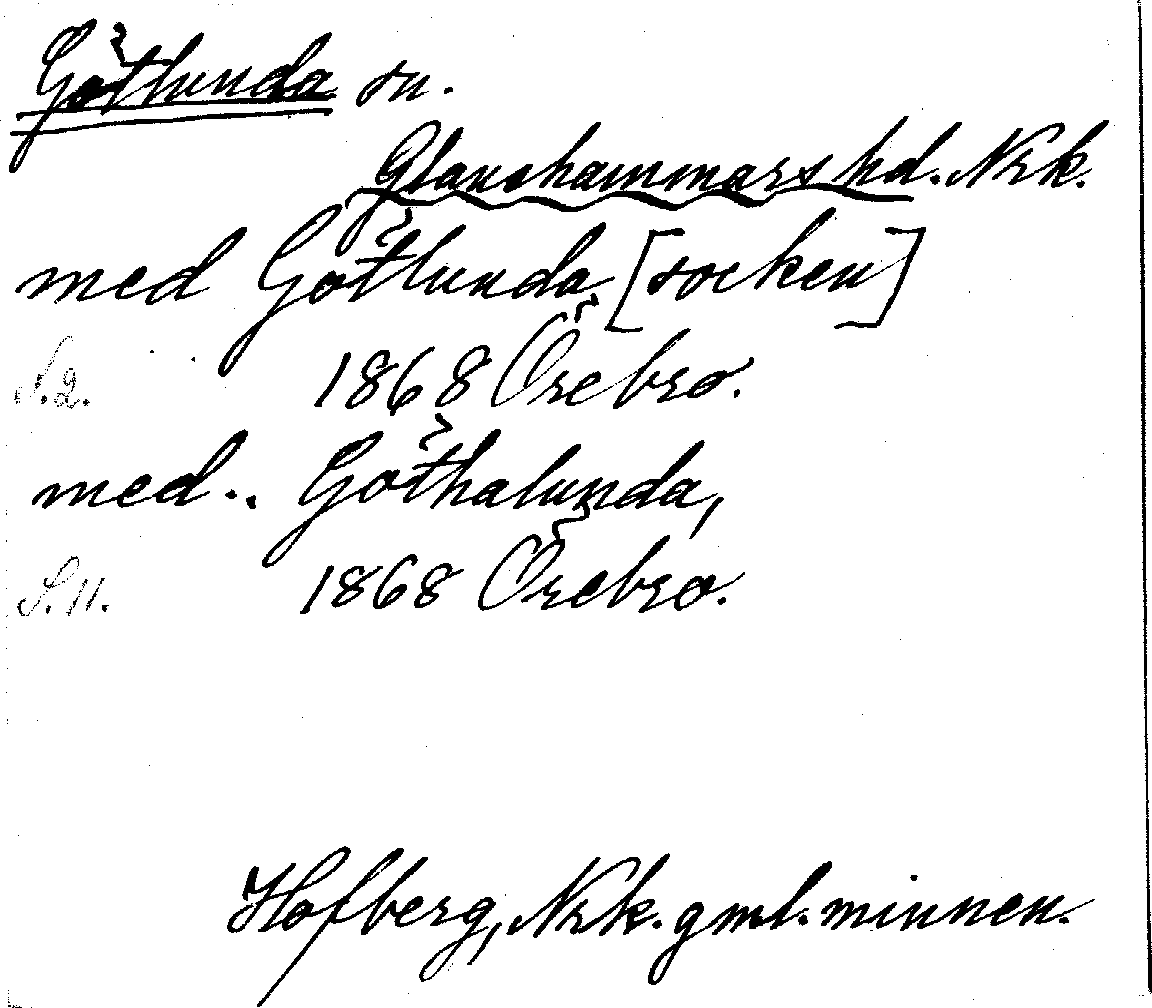 Götlunda sn.
Glanshammars hd. Nrk.
med Götlunda [socken]
S. 2. 1868 Örebro.
med.. Göthalunda,
S. 11. 1868 Örebro.
Hofberg, Nrk. gml. minnen.